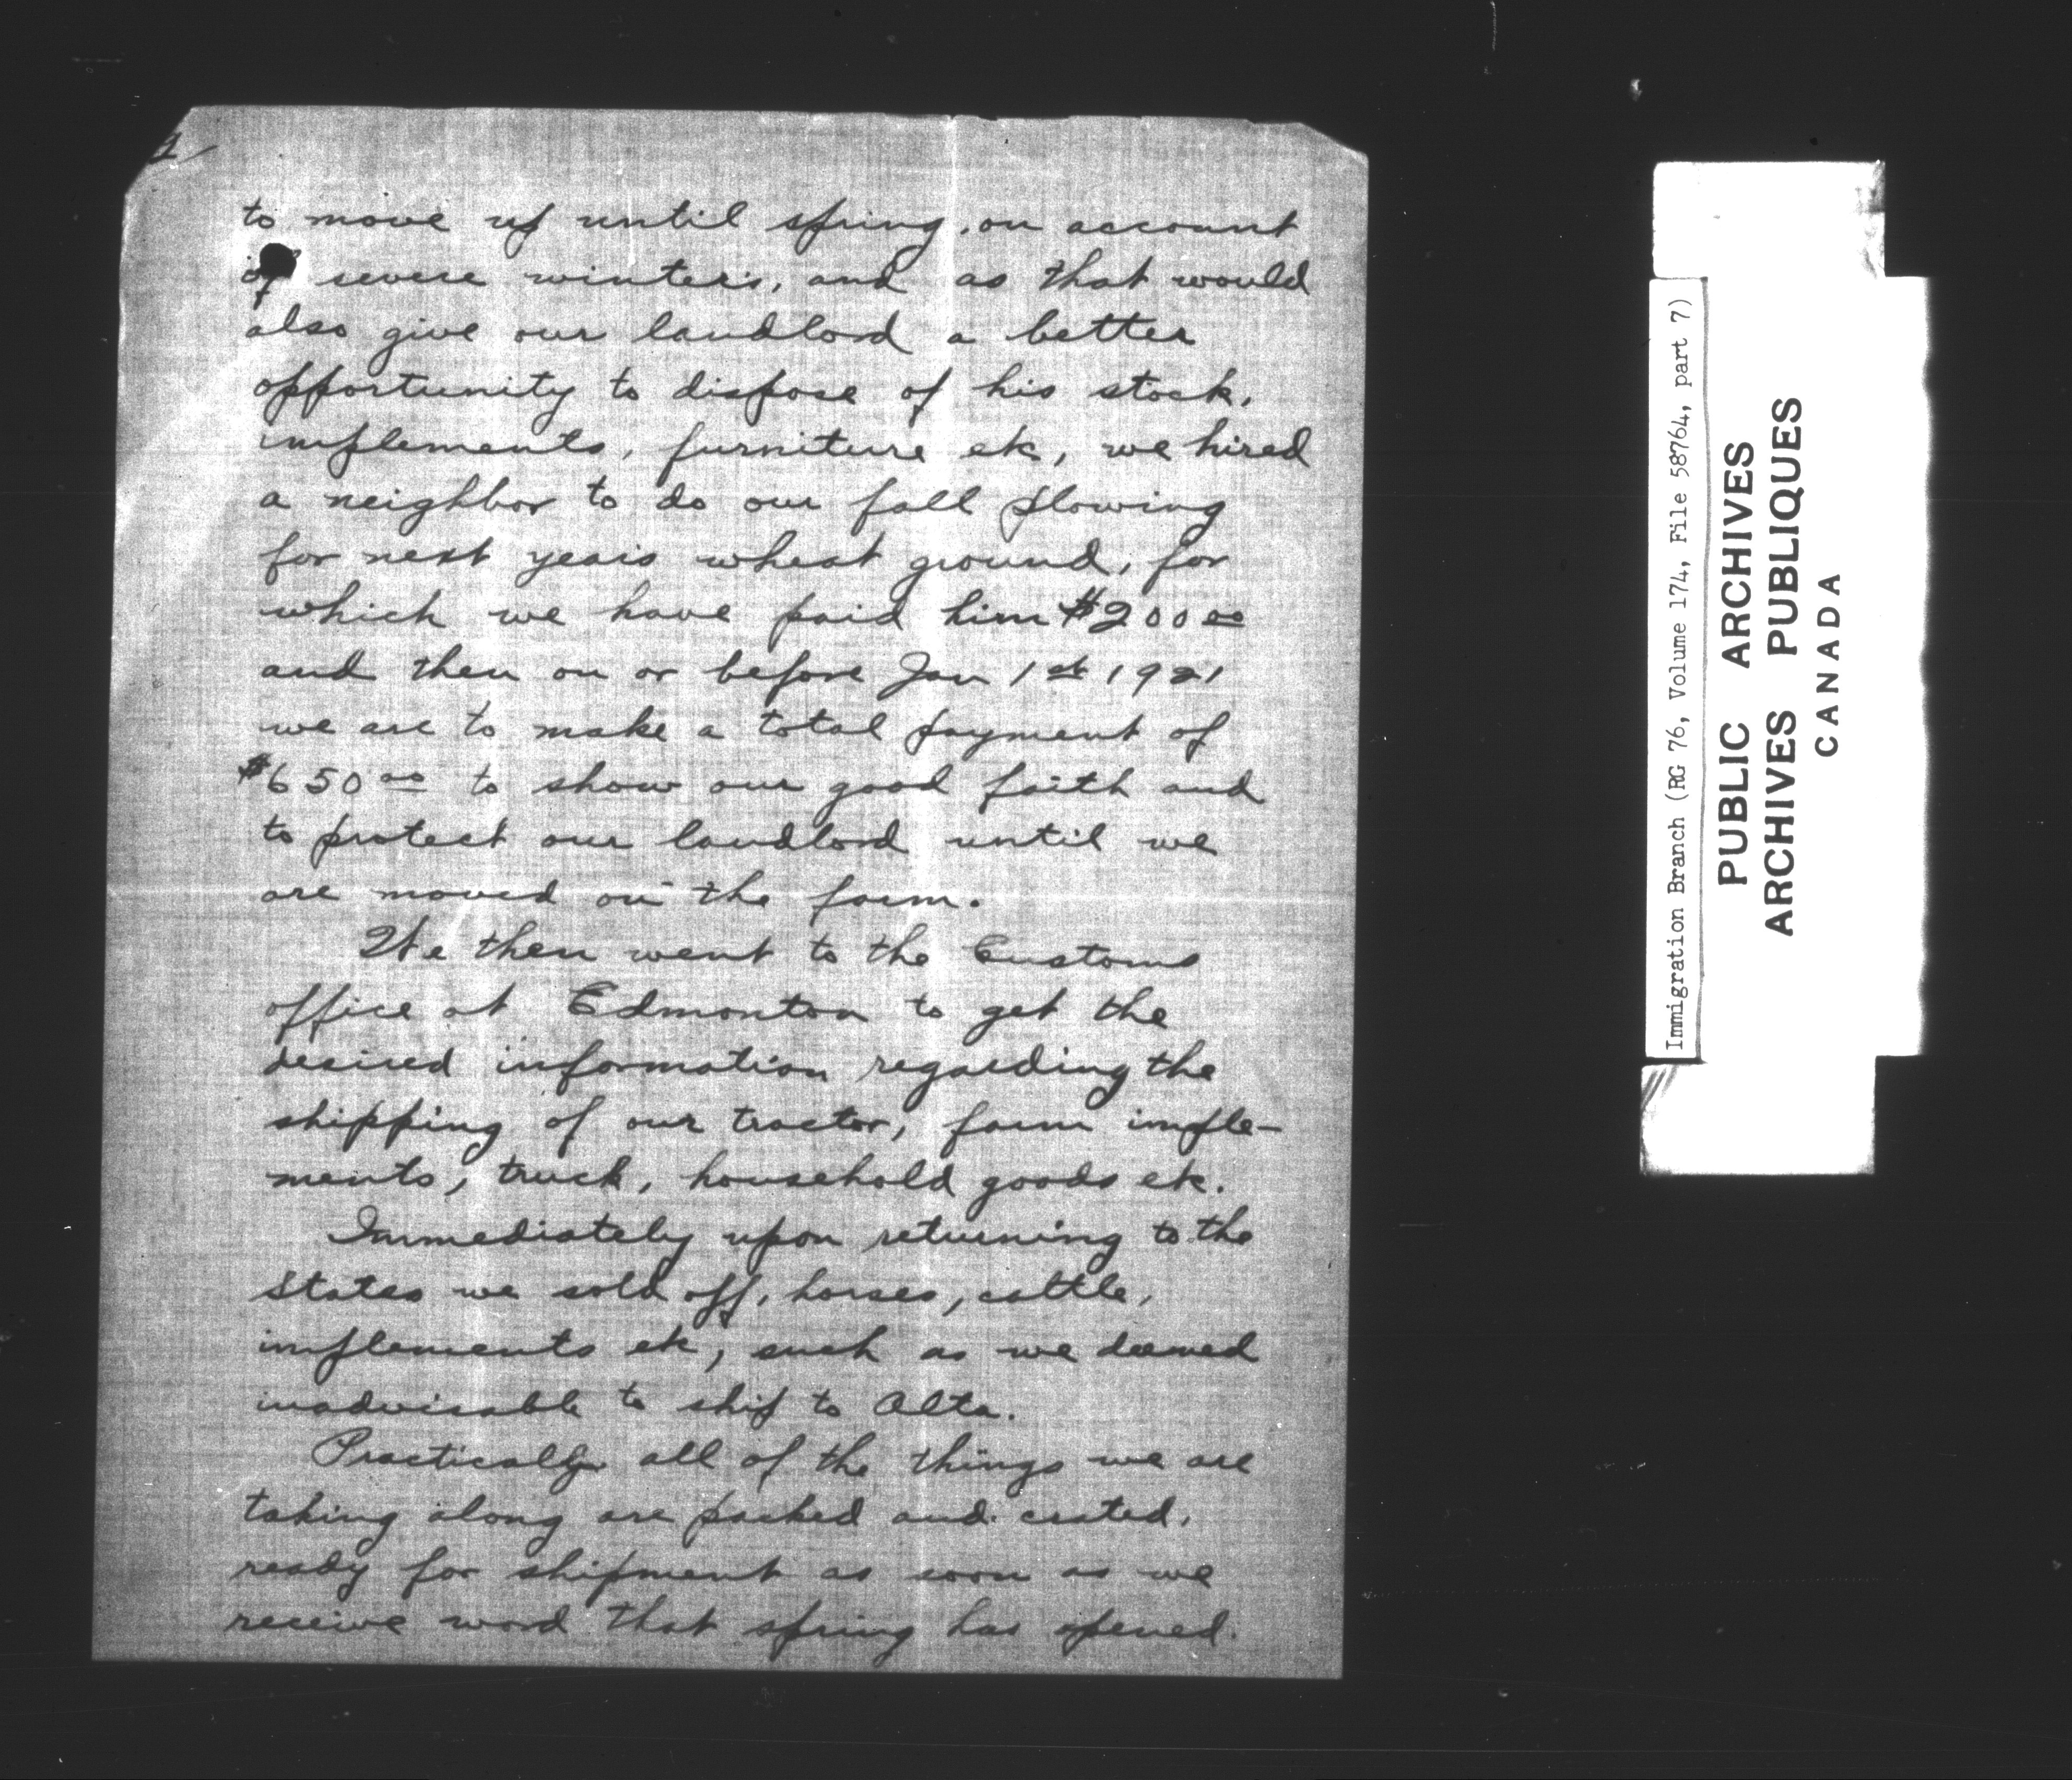 to move up until spring, on account
of severe winters, and as that would
also give our landlord a better
opportunity to dispose of his stock,
implements, furniture etc, we hired
a neighbor to do our fall plowing
for next years wheat ground, for
which we have paid him $200 00
and then on or before Jan 1st 1921
we are to make a total payment of
$650 00 to show our good faith and
to protect our landlord until we
are moved on the farm.
We then went to the Customs
office at Edmonton to get the
desired information regarding the
shipping of our tractor, farm imple-
ments, truck, household goods etc.
Immediately upon returning to the
States we sold off, horses, cattle,
implements etc, such as we deemed
inadvisable to ship to Alta.
Practically all of the things we are
taking along are packed and crated,
ready for shipment as soon as we
receive word that spring has opened.
Immigration Branch (RG 76, Volume 174, File 58764, part 7)
PUBLIC ARCHIVES
ARCHIVES PUBLIQUES
CANADA